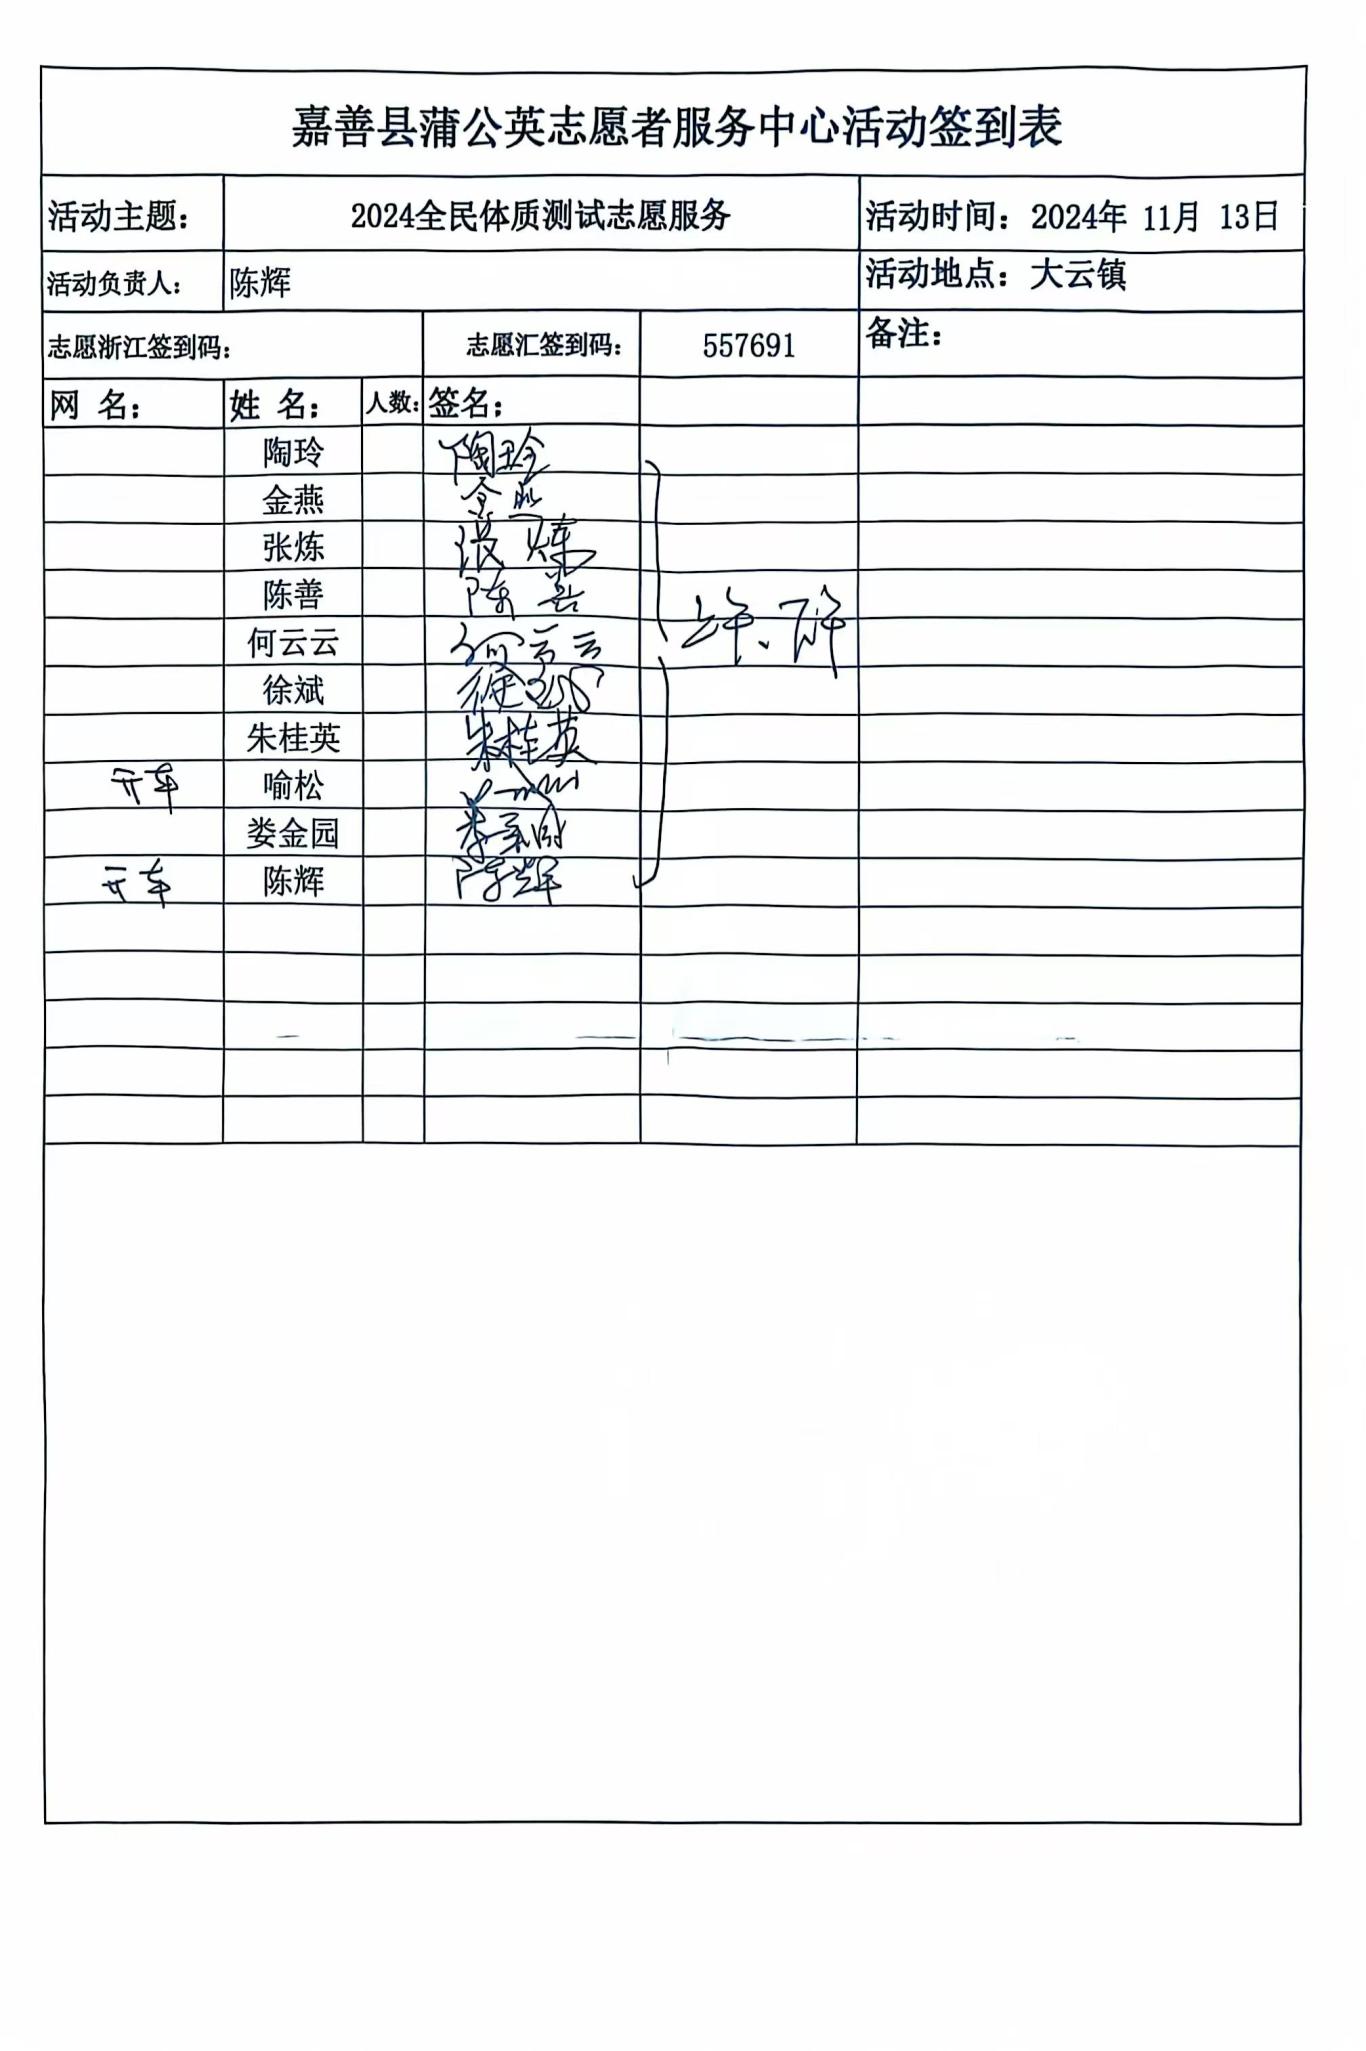 嘉善县蒲公英志愿者服务中心活动签到表
活动主题： 2024全民体质测试志愿服务 活动时间：2024年 11月 13日
活动负责人： 陈辉 活动地点：大云镇
志愿浙江签到码： 志愿汇签到码： 557691 备注：
网 名； 姓 名； 人数： 签名；
陶玲 陶玲
金燕 金燕
张炼 张炼
陈善 陈善
上午、下午
何云云 何云云
徐斌 徐斌
朱桂英 朱桂英
开车 喻松
娄金园 娄金园
开车 陈辉 陈辉